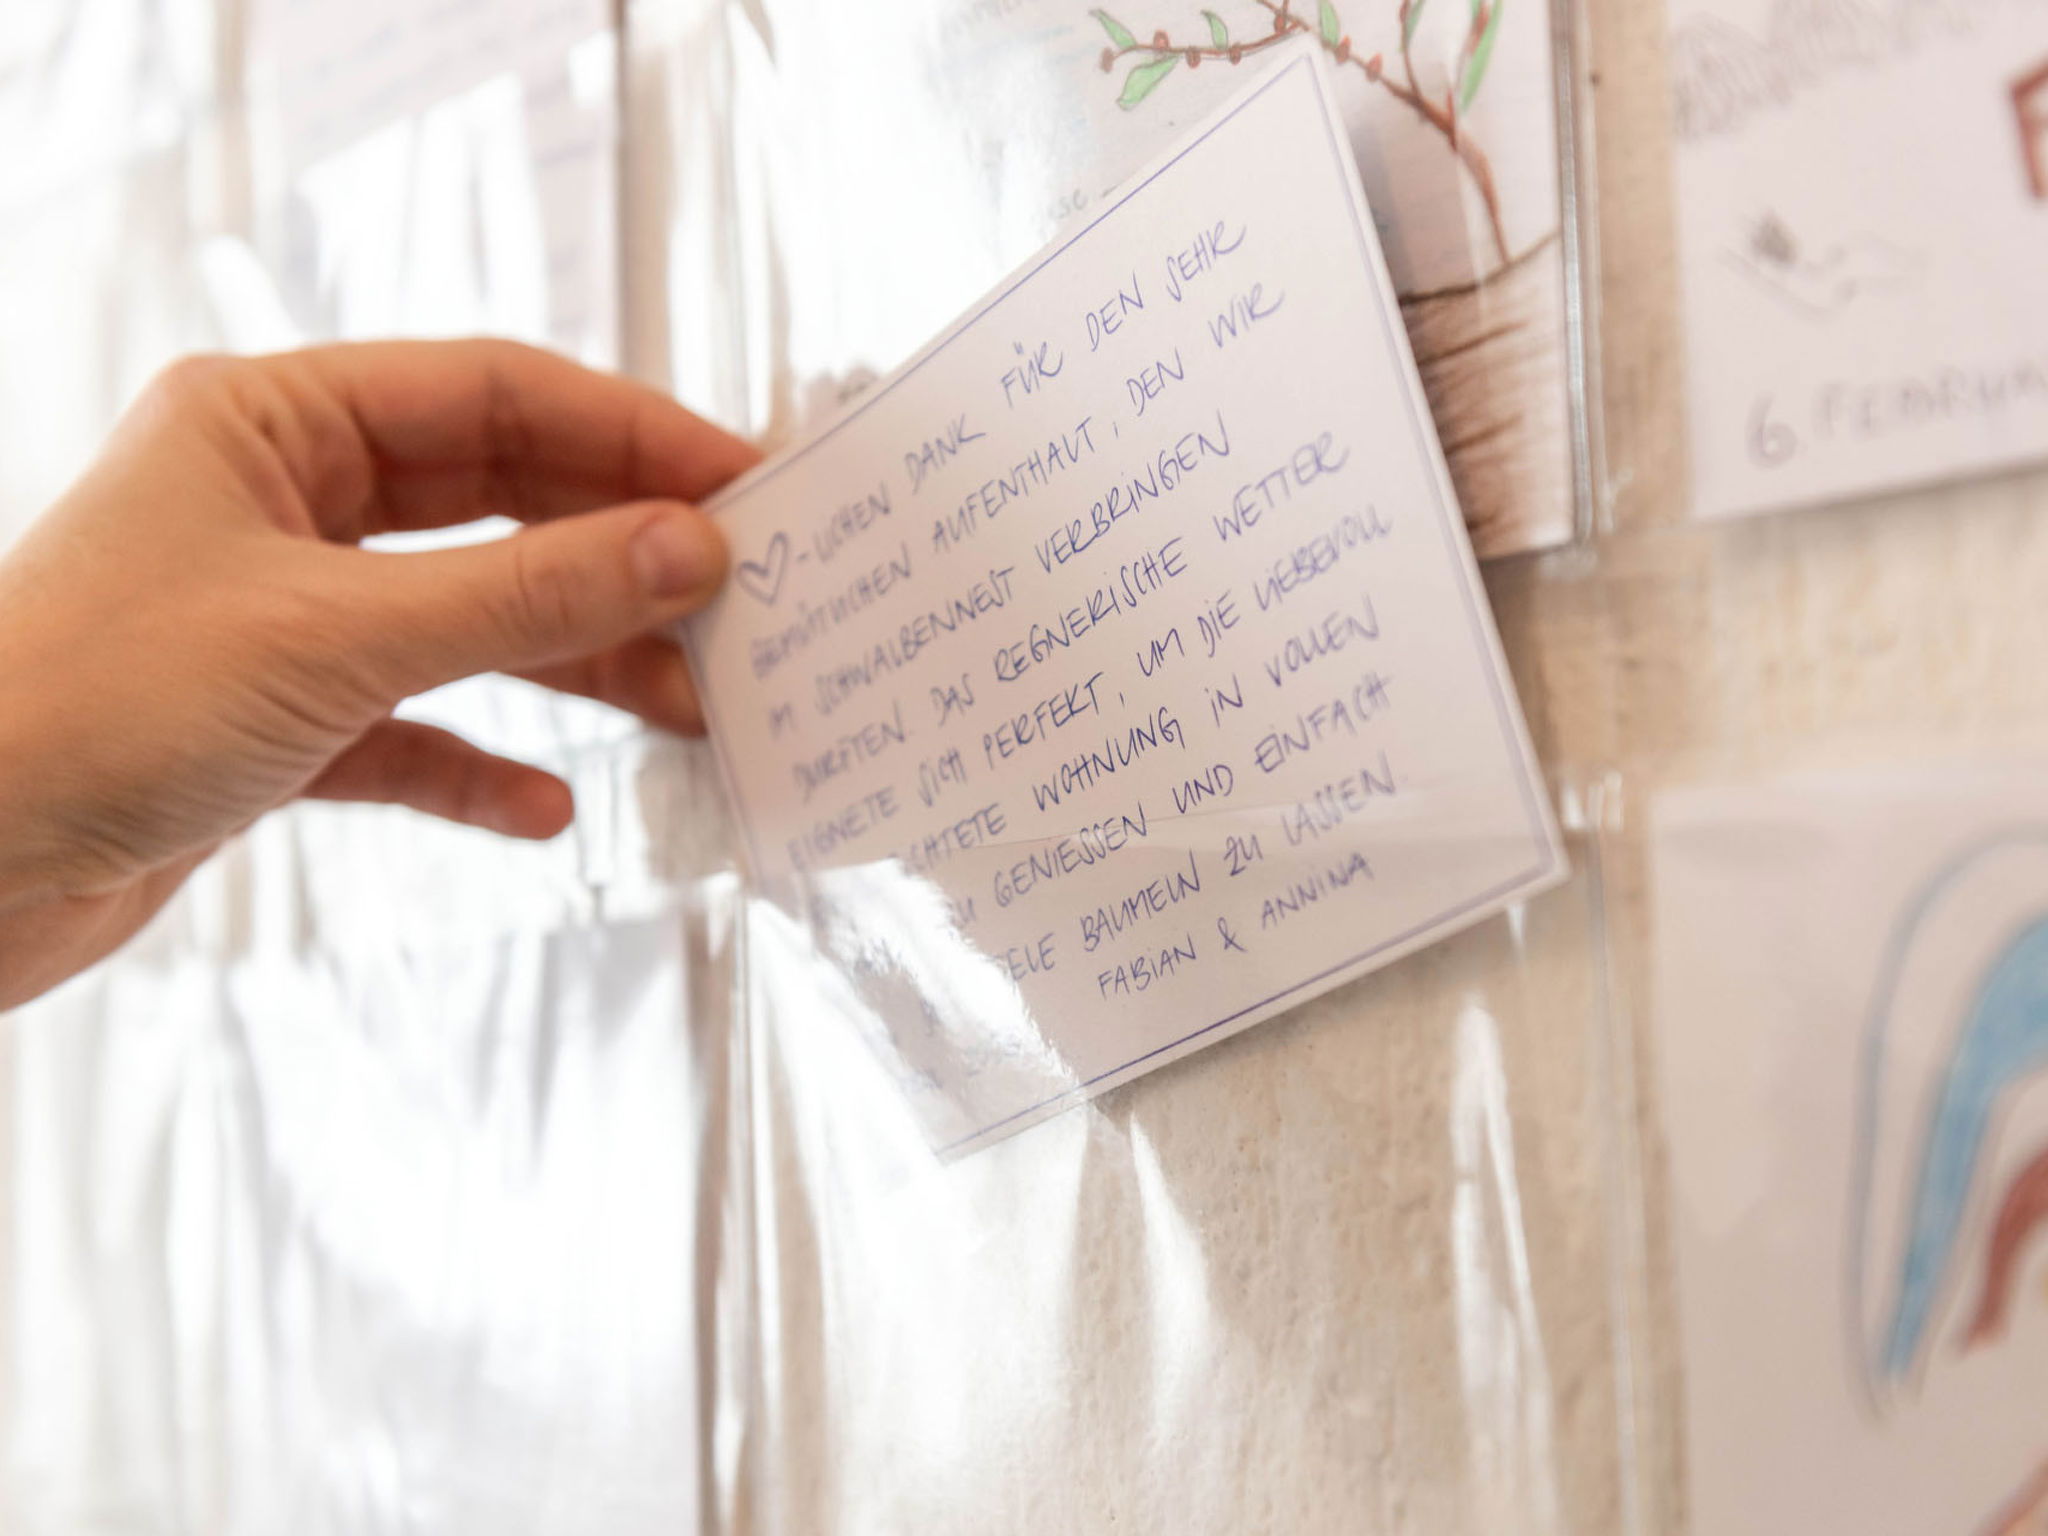 ♡-LICHEN DANK FÜR DEN SEHR
GEMÜTLICHEN AUFENTHALT, DEN WIR
IM SCHWALBENNEST VERBRINGEN
DURFTEN. DAS REGNERISCHE WETTER
EIGNETE SICH PERFEKT, UM DIE LIEBEVOLL
WOHNUNG IN VOLLEN
GENIESSEN UND EINFACH
BAUMELN ZU LASSEN.
FABIAN & ANNINA
6. FEBRUA